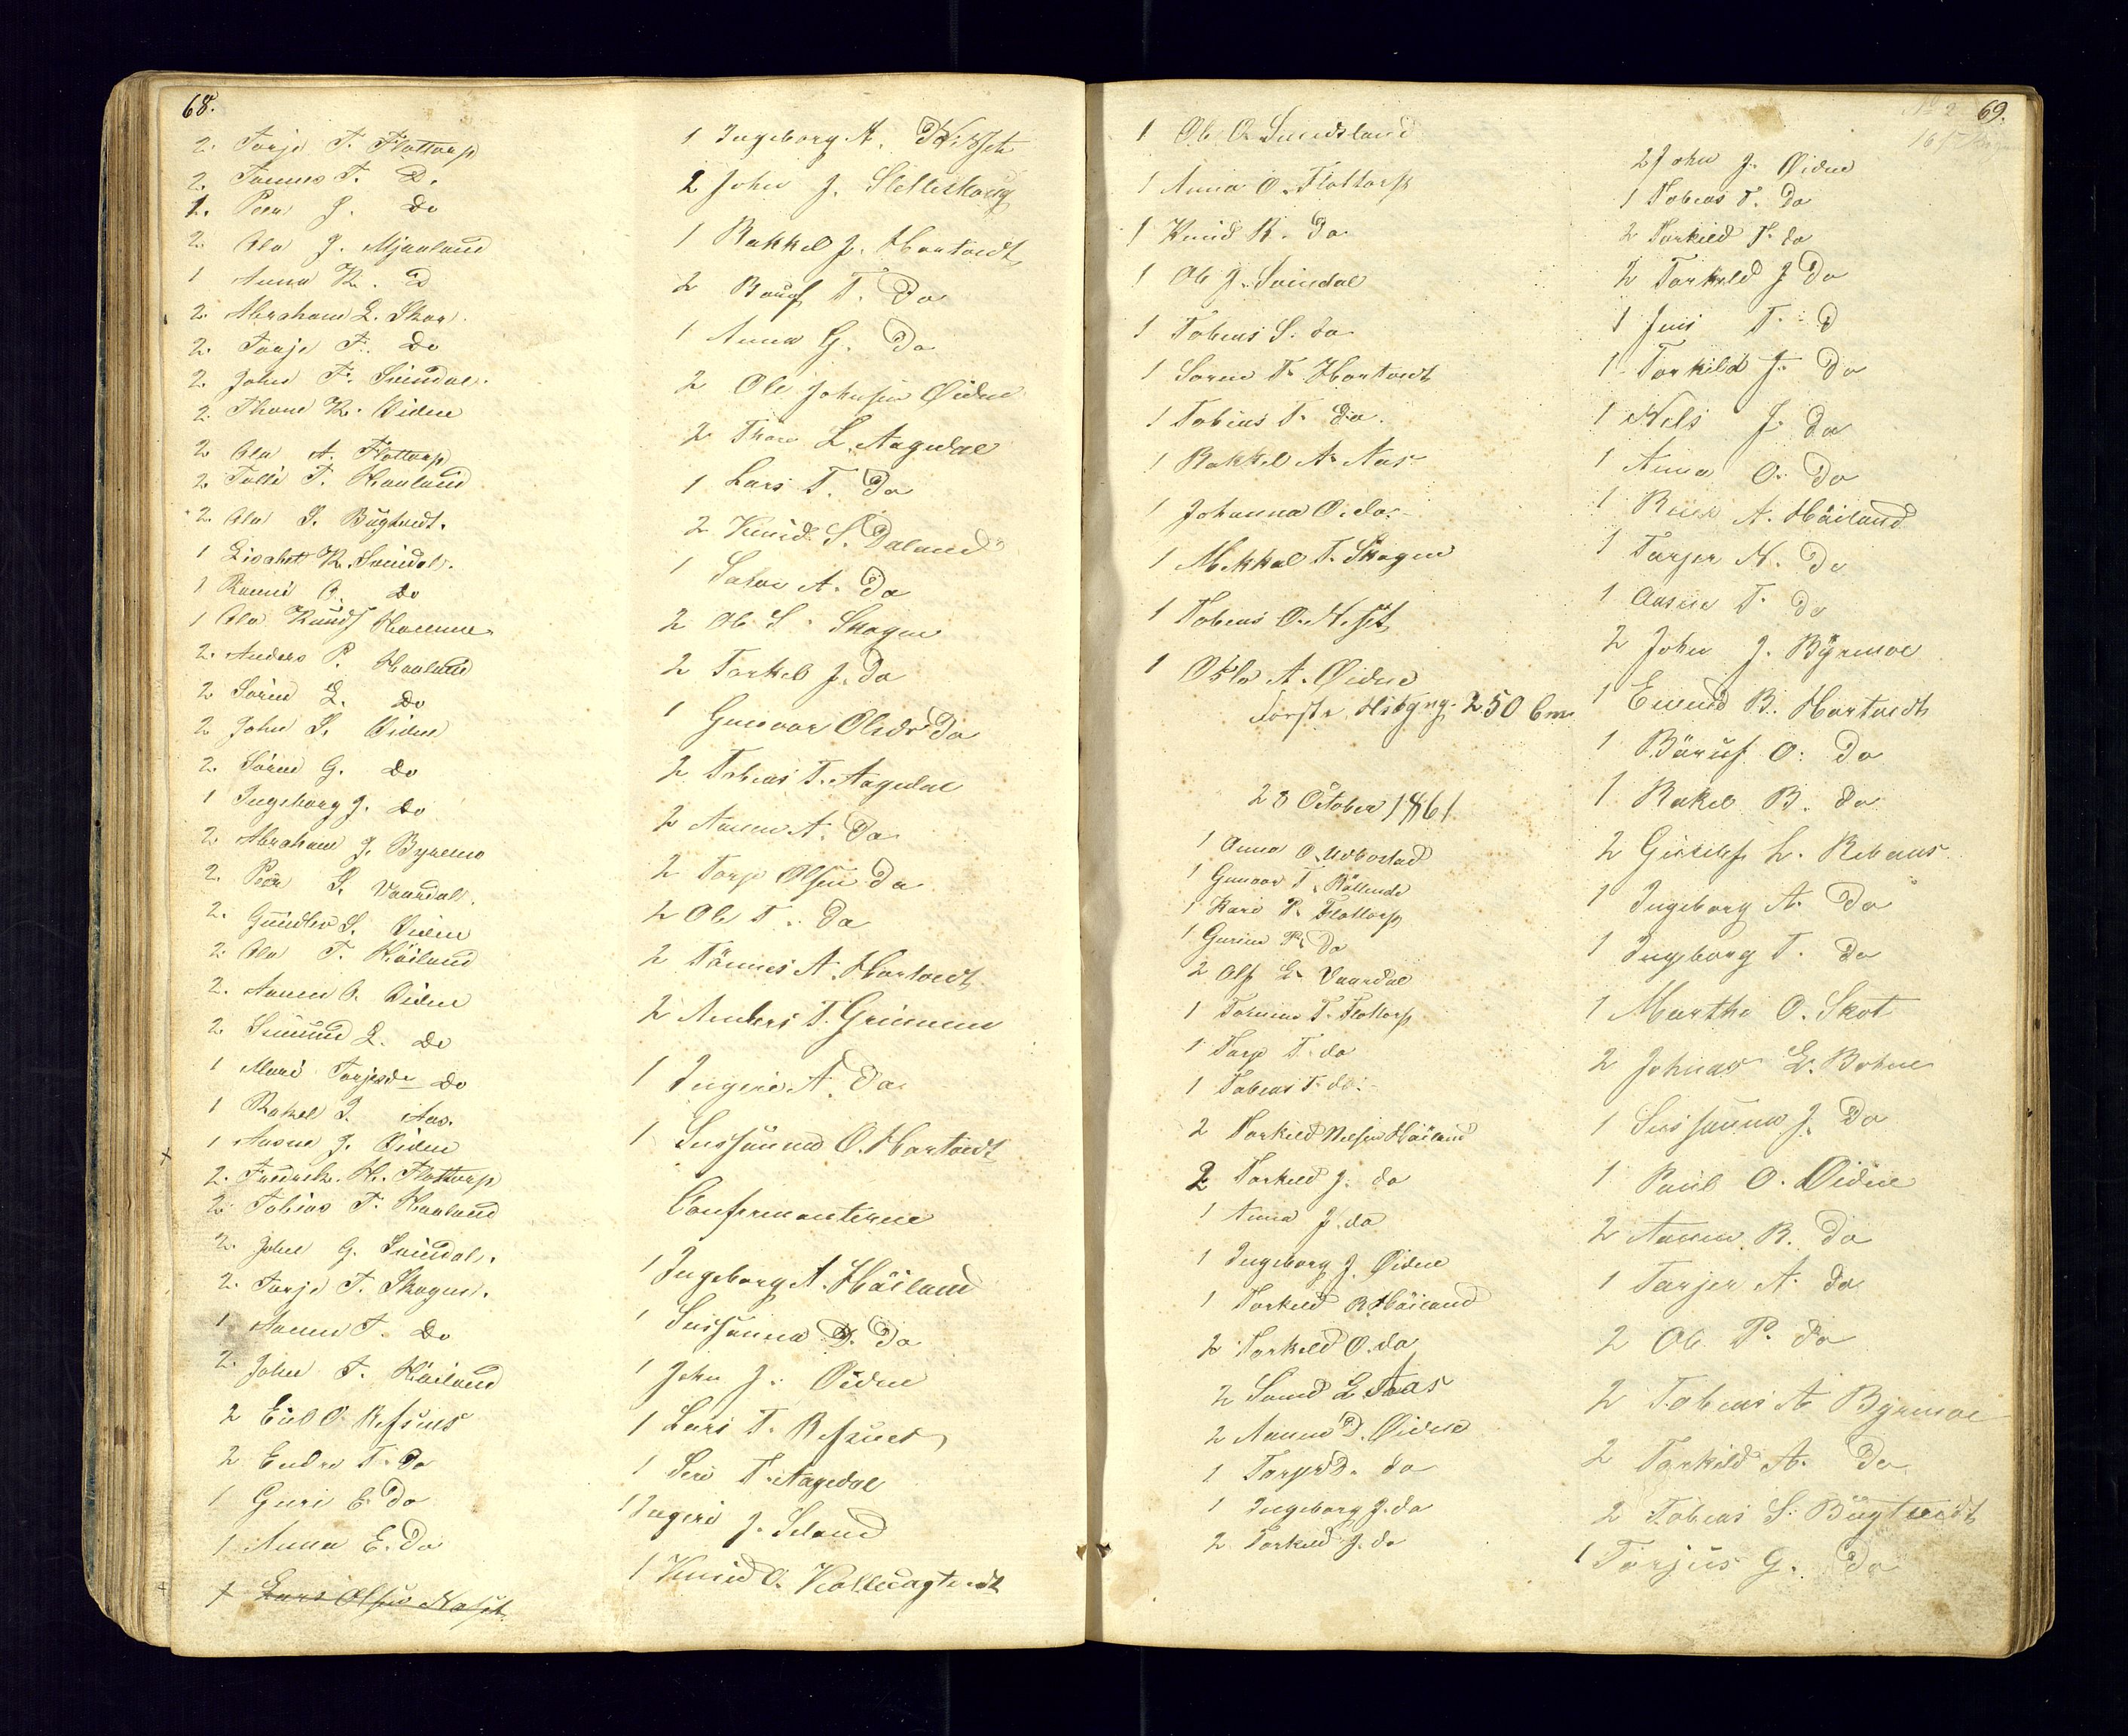 68.
2. Tarje T. Flottorp
2. Tønnes T. D.
1. Peer J. Do
2. Ola J. Mjaaland
1 Anna K. D
2. Abraham L. Skar.
2. Taaje T. Do
2. John T. Svindal.
2. Thore K. Øidne
2 Ola A. Flottorp
2. Tolli T. Haaland
2. Ola S. Bÿgtvedt.
1 Lisabet K. Svindal.
1 O. Do
1 Ola Knuds Homme
2. Anders P. Haaland
2 Sørin L. Do
2 John S. Øidne
2. Sørin G. Do
1 Ingeborg J. Do
2. Abraham J. Byremo
2. Peer S. Vaardal.
2. Gundlev S. Øidne
2. Ola T. Høiland
2. Aanen O. Øidne
2. L. Do
1 Mari Tarjesdr Do
1 Rakel L. Aas.
1 Aasne J. Øidne
2. Fredrik H. Flottorp
2. Tobias T. Haaland
2. John G. Svindal.
2. Tarje T. Skogen.
1. Aanen T. Do
2. John T. Høiland
2 O. Refsnes
2 Endre T. Do
1 Guri E. Do
1 Anna E. Do
1 Lars Olsen
1 Ingeborg A.
2 John J. Sletteskoug
1 Rakkel J. Hortvedt
2 T. Do
1 Anna G. Do
2 Ole Johnsen Øidne
2 Thore L. Aagedal
1 Lars T. Do
2 Knud S. Daland
1 Salve A. Do
2 Ole S. Skogen
2 Torkel J. Do
1 Gunvor Olsdr Do
2 Tobias T. Aagedal
2 Aanen A. Do
2 Tarje Olsen Do
2 Ole T. Do
2 Tönnes A. Hortvedt
2 Anders T. Grimmen
1 Ingeri A. Do
1 Sussanna O. Hortvedt
Confirmanterne
1 Ingeborg A. Höiland
1 Sussanna D. Do
1 John J. Øidne
1 Lars T. Refsnes
1 Siri T. Aagedal
1 Ingeri J. Seland
1 Knud O.
1 Ole O. Sundsland
1 Anna O. Flottorp
1 Knud K. Do
1 Ole J. Svindal
1 Tobias S. do
1 Soren T. Hortvedt
1 Tobias T. do.
1 Rakkel A. Aas
1 Johanna O. do.
1 Mikkal T. Skogen
1 Tobias O.
1 Osla A. Øidne
250
28 October 1861
1 Anna O. Ubostad
1 Gunvor T.
1 Kari P. Flottorp
1 Gurine P. Do
2 Ole E. Vaardal
1 Tomine T. Flottorp
1 Tarje T. do
1 Tobias T. do.
2 Torkild Nilsen Höiland
2 Torkild J. do
1 Anna J. do
1 Ingeborg J. Øidne
1 Torkild R. Höiland
2 Torkild O. do
2 L. Aas
2 Aanen D. Øidne
1 Tarje D. do
1 Ingeborg J. do
2 Torkild J. do
69.
2 John J. Øidne
1 Tobias T. Do
2 Torkild T. do
2 Torkild J Do
1 Jens T. D
1 Torkild J. Do
1 Nels J. Do
1 Anna O. Do
1 Reier A. Höiland
1 Tarjer N. Do
1 Aasne T. Do
2 John J. Bÿremoe
1 B. Hortvedt
1 O. Do
1 Rakel B. Do
2 L.
1 Ingeborg A. Do
1 Ingeborg T. Do
1 Marthe O. Skot
2 Johnas L.
1 Sussanna J. Do
1 Paul O. Øidne
2 Aanen B. Do
1 Tarjer A. do
2 Ole P. do
2 Tobias A Byremoe
2 Torkild A. Do
2 Tobias S. Bÿgtvedt
1 Tarjus G. Do